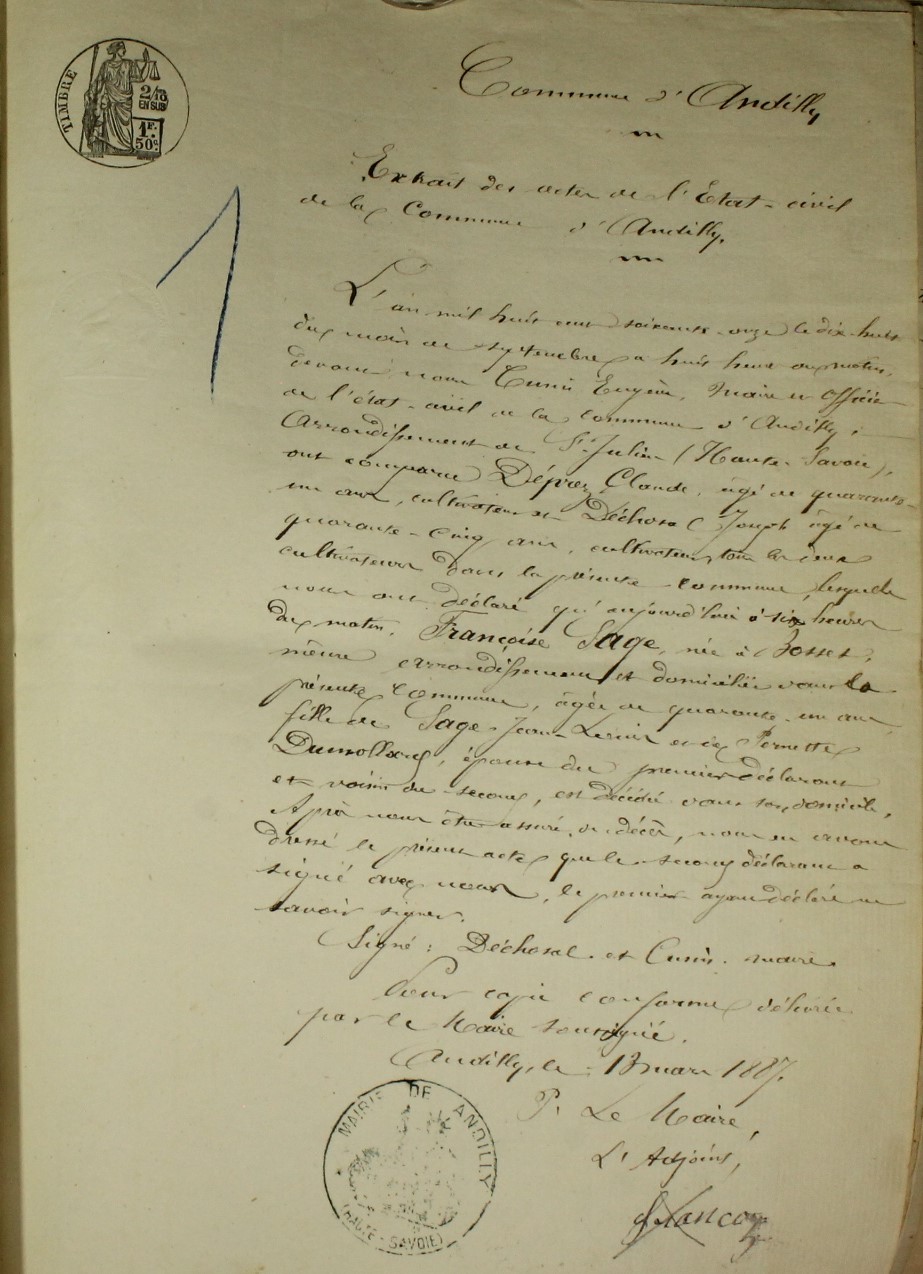 TIMBRE
2/10
EN SUS
1F.
50c.
Commune d'Andilly
Extrait des actes de l'Etat-civil
de la Commune d'Andilly.
L'an mil huit cent soixante-onze le dix-huit
du mois de septembre à huit heures du matin,
devant nous Cunin Eugène, Maire et Officier
de l'état-civil de la commune d'Andilly,
Arrondissement de St Julien (Haute-Savoie),
ont comparu Déprez Claude, âgé de quarante-
un ans, cultivateur et Déchosal Joseph âgé de
quarante-cinq ans, cultivateur, tous les deux
cultivateurs dans la présente commune, lesquels
nous ont déclaré qu'aujourd'hui à six heures
du matin, Françoise Sage, née à Bosset,
même arrondissement et domiciliée dans la
présente commune, âgée de quarante-un ans
fille de Sage Jean-Louis et de Pernette
Dumollard, épouse du premier déclarant
et voisine du second, est décédée dans son domicile,
Après nous être assuré du décès, nous en avons
dressé le présent acte que le second déclarant a
signé avec nous, le premier ayant déclaré ne
savoir signer.
Signé: Déchosal et Cunin, maire.
Pour copie conforme délivrée
par le Maire soussigné.
Andilly, le 13 mars 1887.
P. Le Maire,
L'Adjoint,
MAIRIE DE ANDILLY
(HAUTE-SAVOIE)